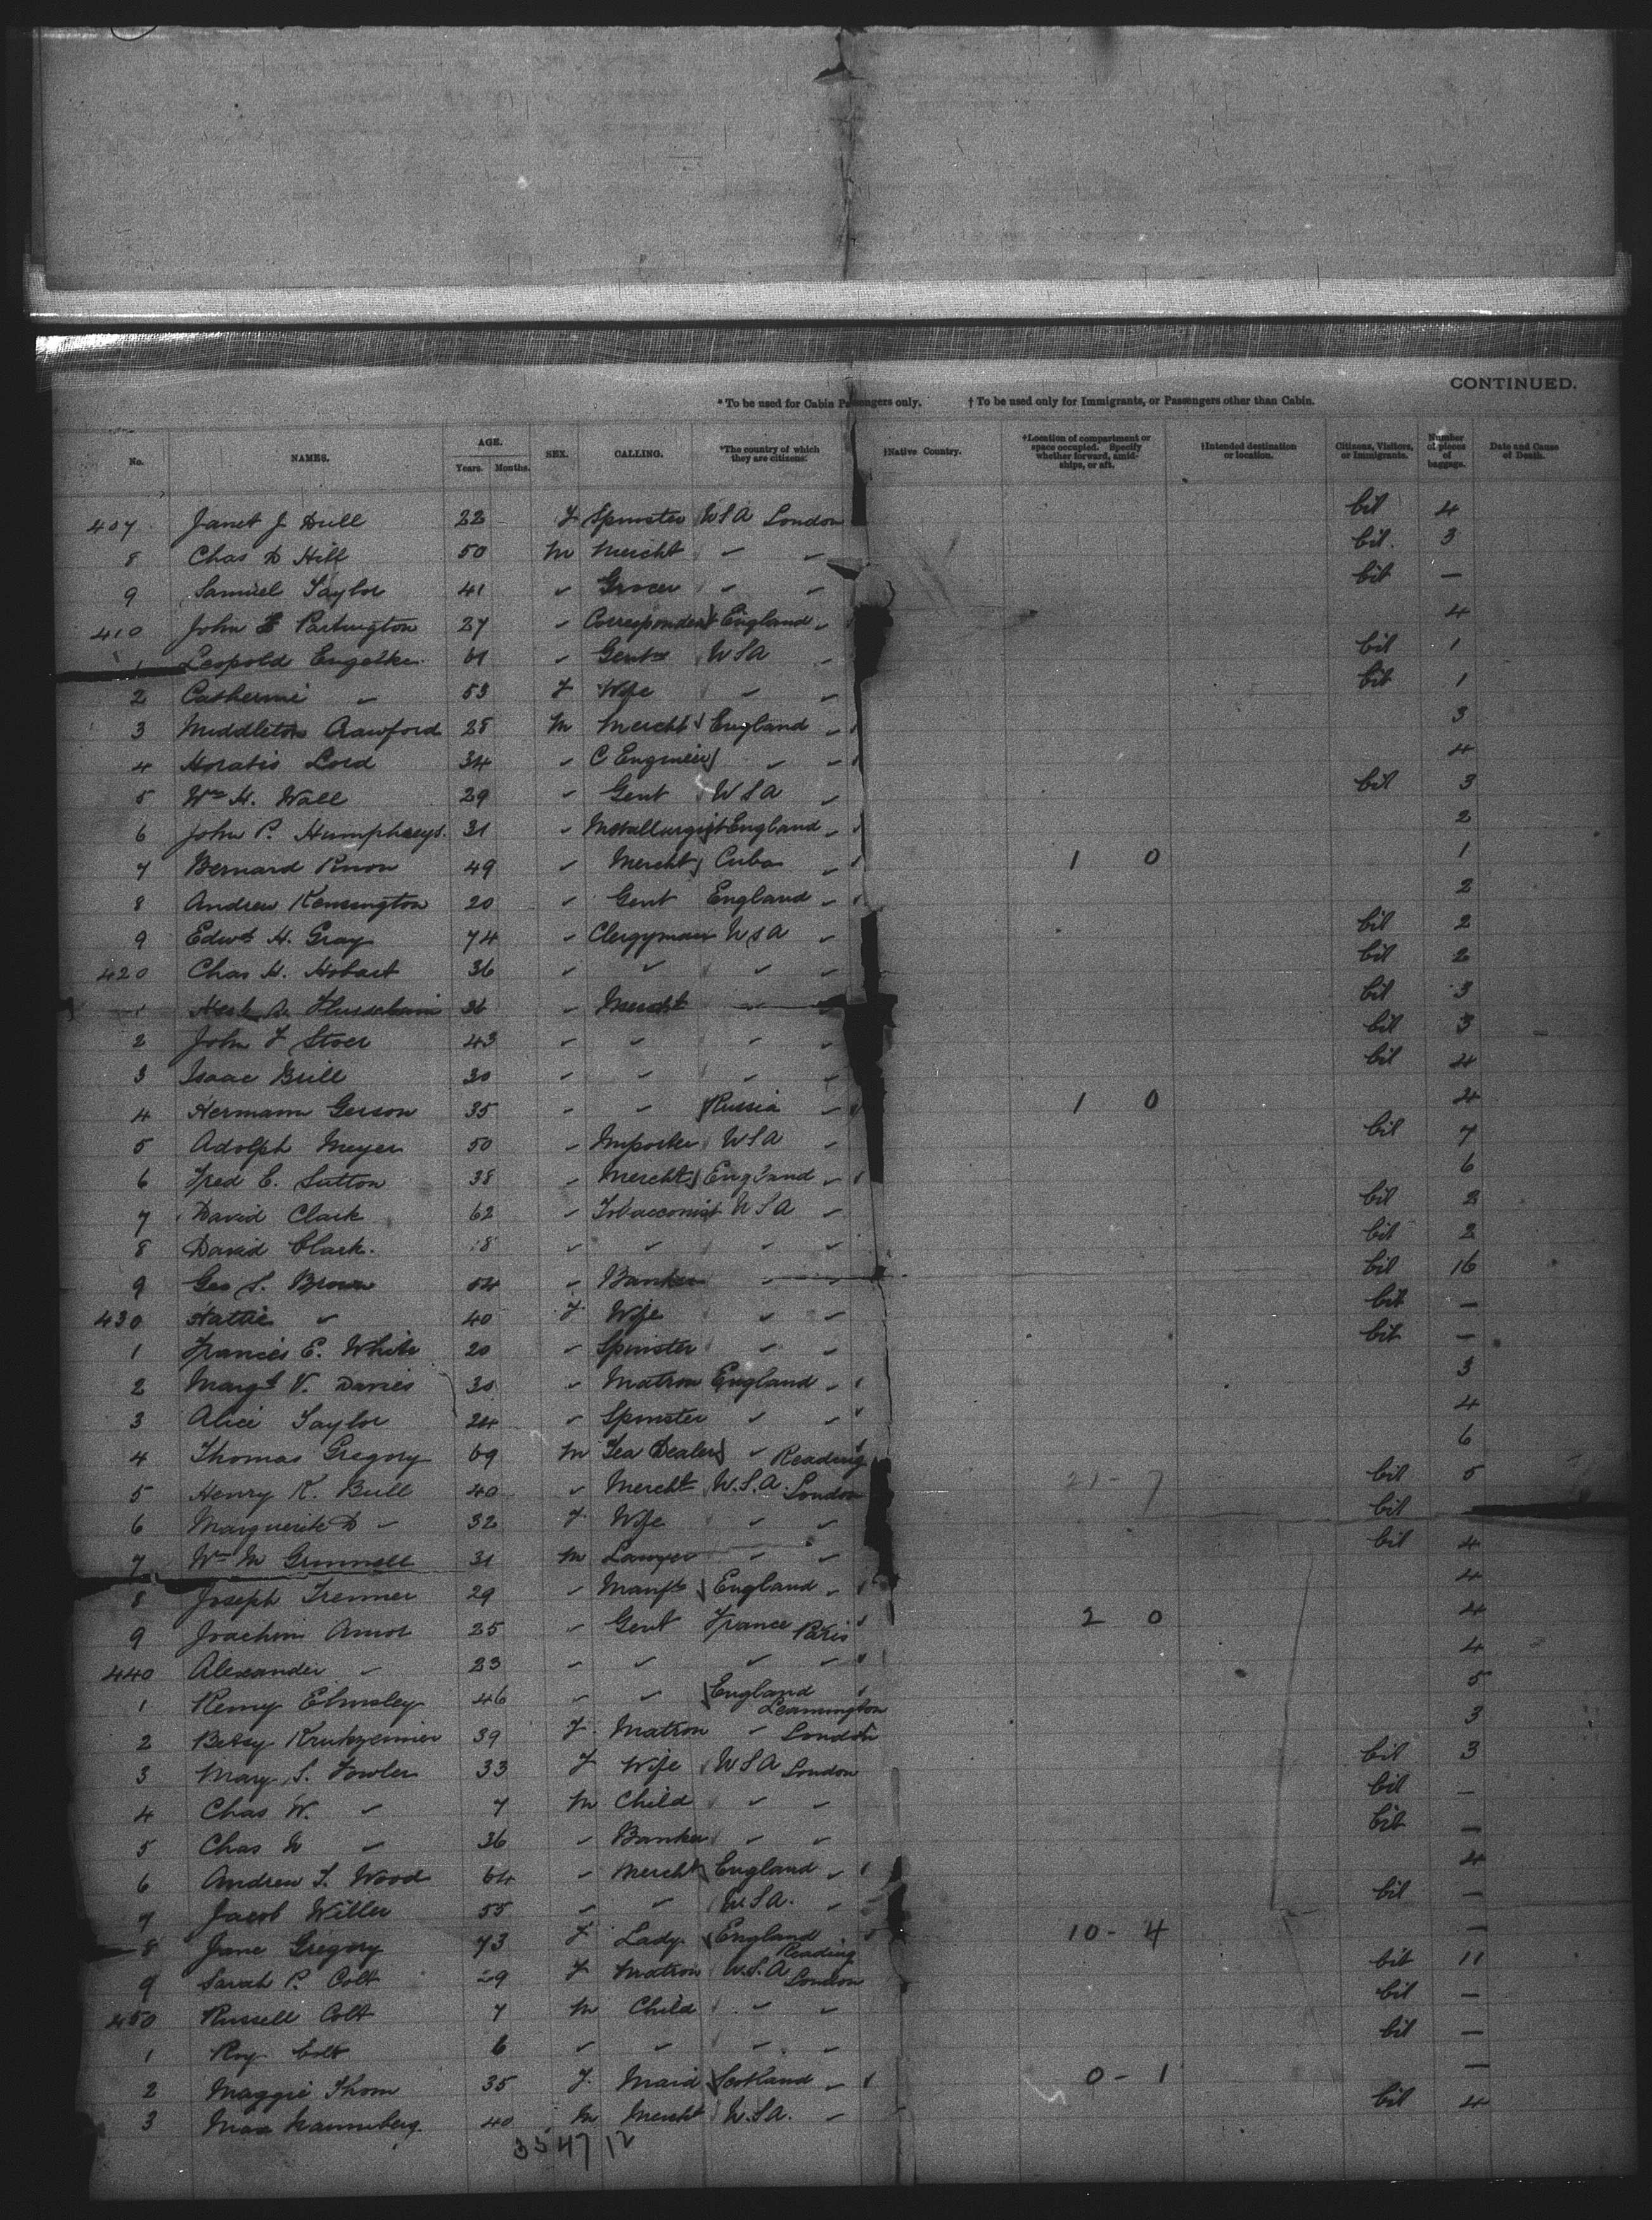 CONTINUED.
* To be used for Cabin Passengers only. † To be used only for Immigrants, or Passengers other than Cabin.
No. NAMES. AGE. Years. Months. SEX. CALLING. *The country of which they are citizens. †Native Country. †Location of compartment or space occupied. Specify whether forward, amidships, or aft. †Intended destination or location. Citizens, Visitors, or Immigrants. Number of pieces of baggage. Date and Cause of Death.
407 Janet J Dull 22 F Spinster USA London Cit 4
8 Chas D Hill 50 M Mercht " " Cit. 3
9 Samuel Taylor 41 " Grocer " " Cit —
410 John E Partington 27 " Correspondent England " 4
1 Leopold Engelke 61 " Gent USA " Cit 1
2 Catherine " 53 F Wife " " Cit 1
3 Middleton Crawford 28 M Mercht England " 3
4 Horatio Lord 34 " C Engineer " " 4
5 Wm H. Wall 29 " Gent USA " Cit 3
6 John P. Humphreys. 31 " Metallurgist England " 2
7 Bernard 49 " Mercht Cuba " 1 0 1
8 Andrew Kensington 20 " Gent England " 2
9 Edwd H. Gray 74 " Clergyman USA " Cit 2
420 Chas H. Hobart 36 " " " " Cit 2
1 36 " Mercht " Cit 3
2 John F Stoer 43 " " " " Cit 3
3 Isaac Brill 30 " " " " Cit 4
4 Hermann Gerson 35 " " Russia " 1 0 4
5 Adolph Meyer 50 " Importer USA " Cit 7
6 Fred C. Sutton 38 " Mercht England " 6
7 David Clark 62 " Tobacconist USA " Cit 2
8 David Clark. 18 " " " " Cit 2
9 Geo S. Brown 54 " Banker " " Cit 16
430 Hattie " 40 F Wife " " Cit —
1 Francis E. White 20 " Spinster " " Cit —
2 Margt V. Davies 30 " Matron England " 3
3 Alice Taylor 24 " Spinster " " 4
4 Thomas Gregory 69 M Tea Dealer " Reading 6
5 Henry K. Bull 40 " Mercht U.S.A. London 21 - 7 Cit 5
6 Marguerite D " 32 F Wife " " Cit
7 Wm M Grinnell 31 M Lawyer " " Cit 4
8 Joseph Tremner 29 " Manftr England " 4
9 Joachim 25 " Gent France Paris 2 0 4
440 Alexander " 23 " " " " 4
1 Remy Elmsley 46 " " England Leamington 5
2 Betsy 39 F. Matron " London 3
3 Mary S. Fowler 33 F Wife USA London Cit 3
4 Chas W. " 7 M Child " " Cit —
5 Chas N " 36 " Banker " " Cit —
6 Andrew T. Wood 64 " Mercht England " 4
7 Jacob Willer 55 " " U.S.A. " Cit —
8 Jane Gregory 73 F Lady England Reading 10 - 4 —
9 Sarah P. Colt 29 F Matron U.S.A London Cit 11
450 Russell Colt 7 M Child " " Cit —
1 Roy Colt 6 " " " " Cit —
2 Maggie Thom 35 F. Maid Scotland " 0 - 1 —
3 Max Wannenberg. 40 M Mercht U.S.A. " Cit 4
35 47 12